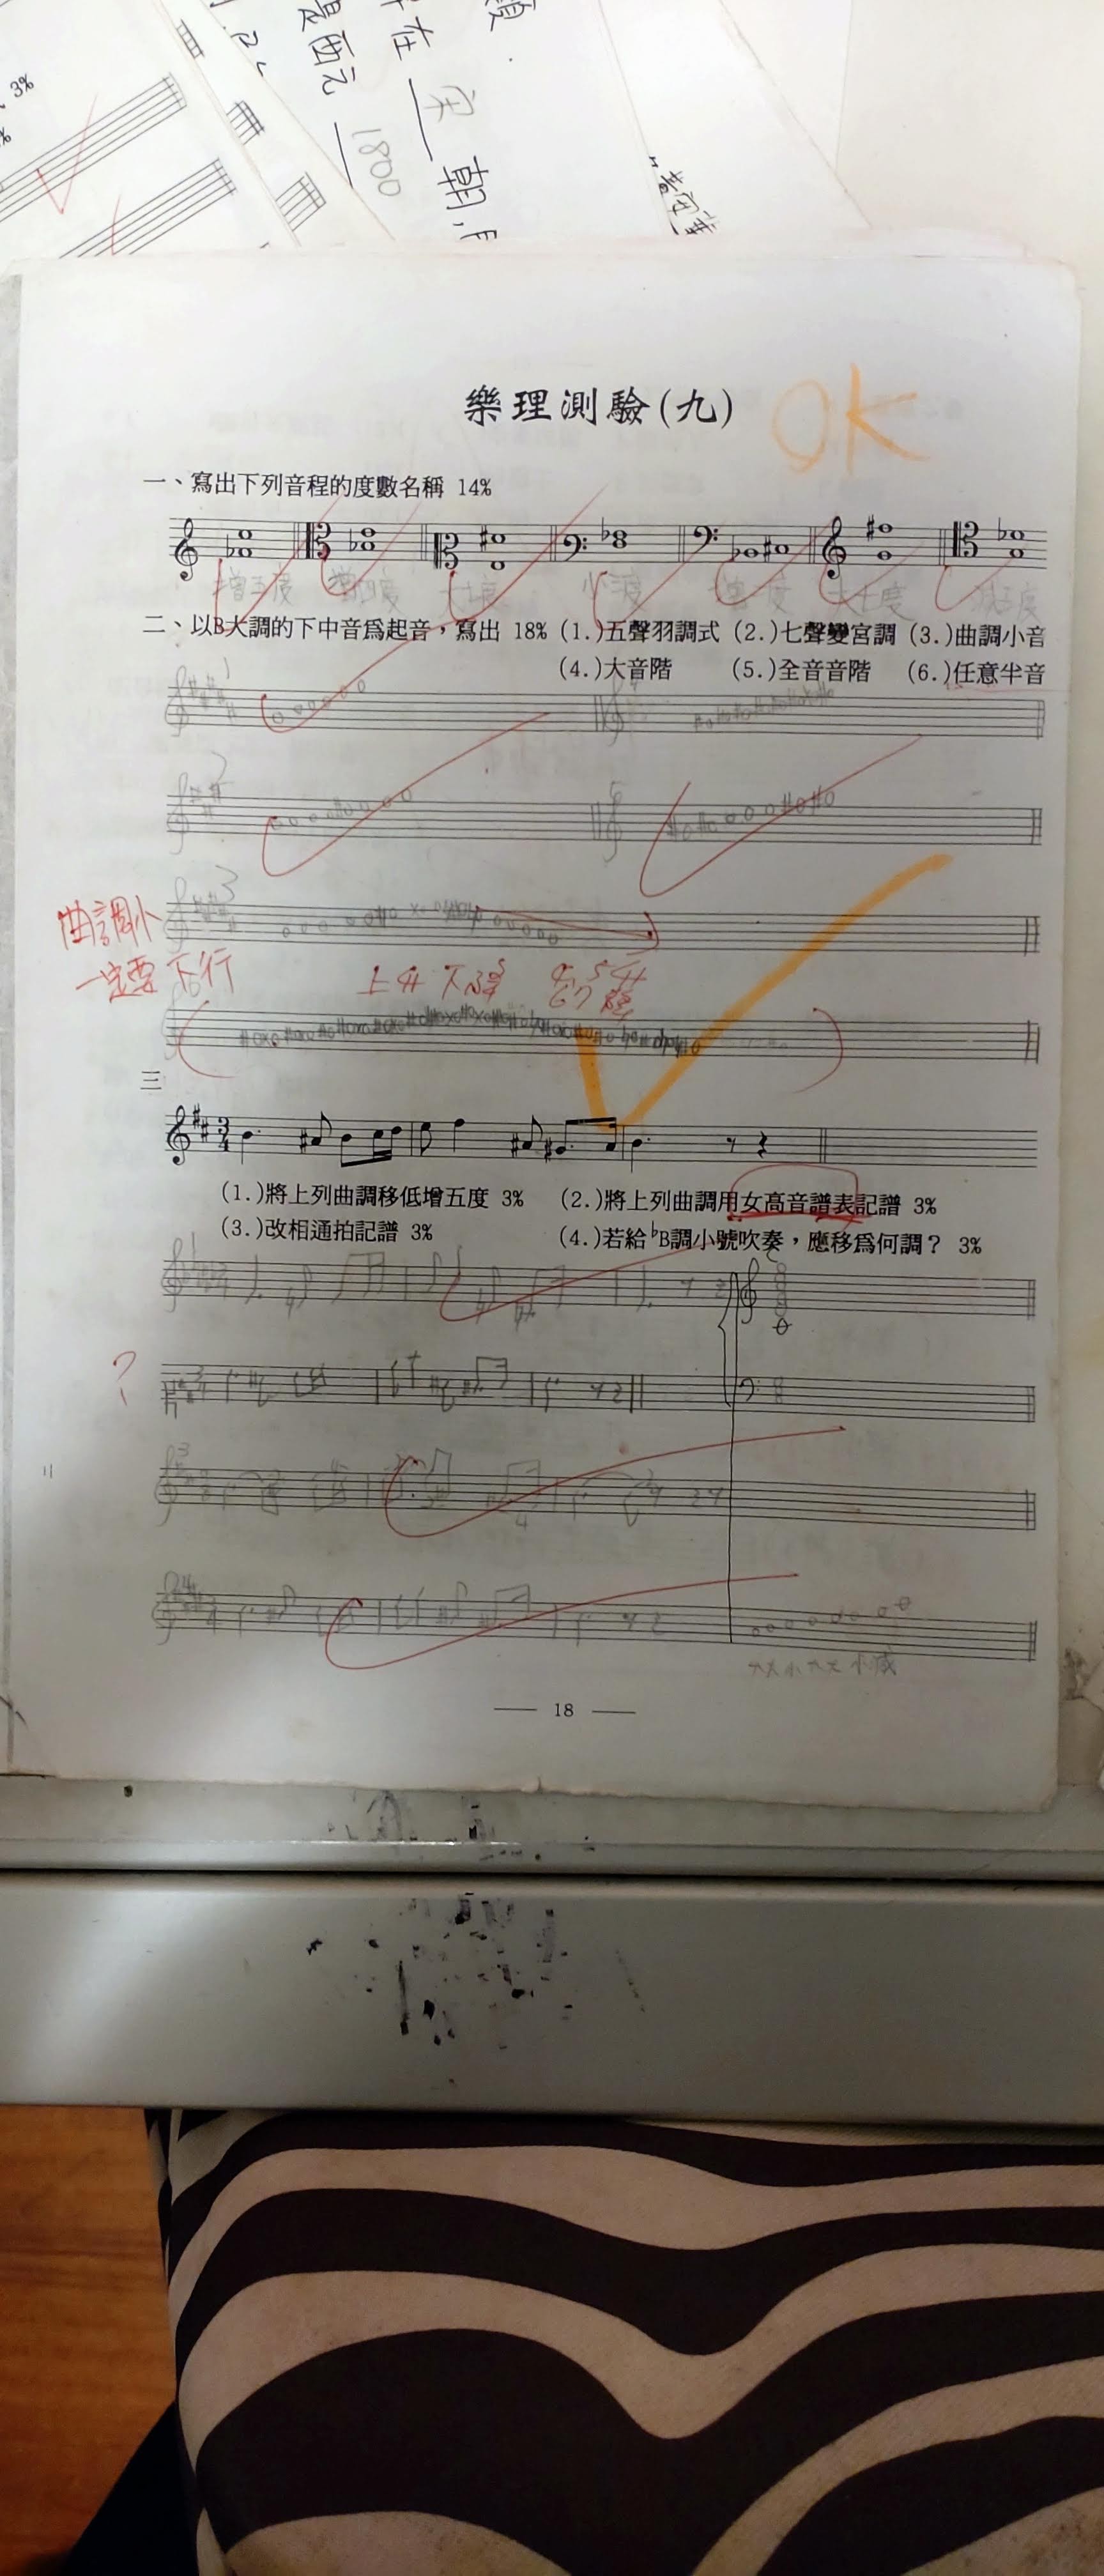 3%
是西元 1800
在 宋 朝,
樂理測驗(九)
OK
一、寫出下列音程的度數名稱 14%
增五度 增四度 大七度 小三度 增一度 大七度 減五度
二、以B大調的下中音爲起音,寫出 18% (1.)五聲羽調式 (2.)七聲變宮調 (3.)曲調小音
(4.)大音階 (5.)全音音階 (6.)任意半音
1
2
5
3
曲調小
一定要下行
上升 下降
三
3
4
(1.)將上列曲調移低增五度 3% (2.)將上列曲調用女高音譜表記譜 3%
(3.)改相通拍記譜 3% (4.)若給♭B調小號吹奏,應移爲何調? 3%
1
?
3
4
大大小大大小減
— 18 —